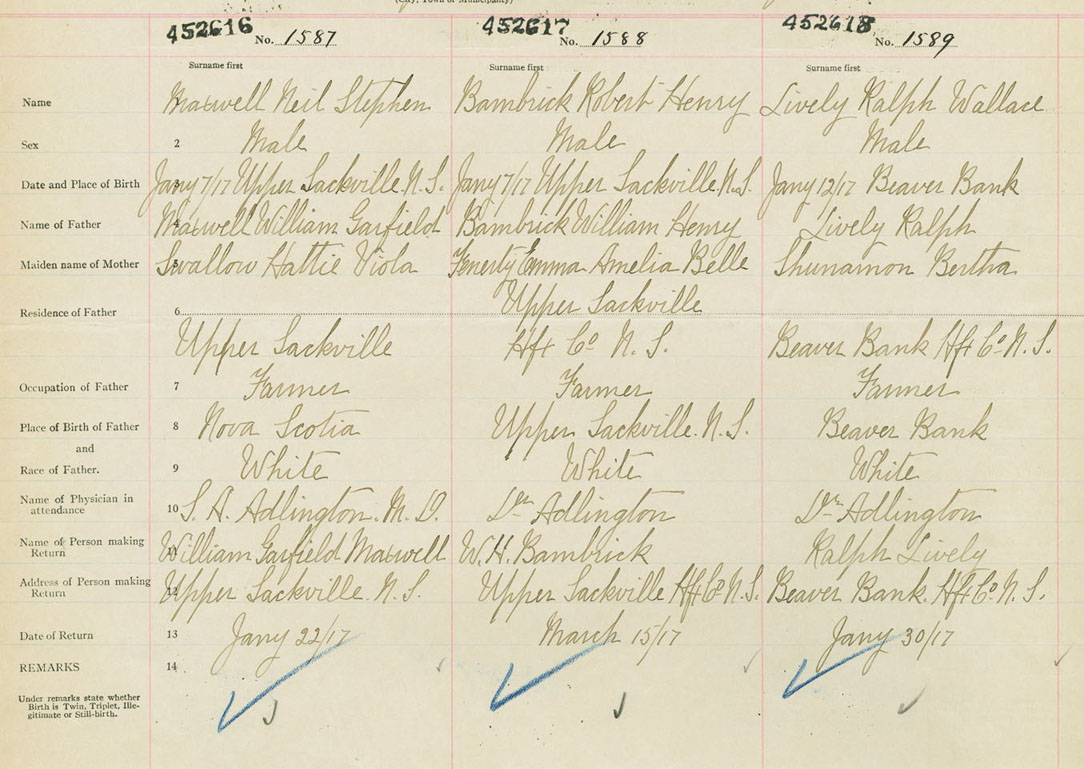 (City, Town or Municipality)
452616 452617 452618
No. 1587 No. 1588 No. 1589
Surname first Surname first Surname first
Name Maxwell Neil Stephen Bambrick Robert Henry Lively Ralph Wallace
Sex 2 Male Male Male
Date and Place of Birth Jany 7/17 Upper Sackville N.S. Jany 7/17 Upper Sackville N.S. Jany 12/17 Beaver Bank
Name of Father Maxwell William Garfield Bambrick William Henry Lively Ralph
Maiden name of Mother 5 Swallow Hattie Viola Fenerty Emma Amelia Belle Shunamon Bertha
Upper Sackville
Residence of Father 6
Upper Sackville Hfx Co N. S. Beaver Bank Hfx Co N. S.
Occupation of Father 7 Farmer Farmer Farmer
Place of Birth of Father 8 Nova Scotia Upper Sackville. N. S. Beaver Bank
and
Race of Father. 9 White White White
Name of Physician in
attendance 10 S. A. Adlington. M. D. Dr Adlington Dr Adlington
Name of Person making
Return 11 William Garfield Maxwell W. H. Bambrick Ralph Lively
Address of Person making
Return 12 Upper Sackville. N. S. Upper Sackville Hfx Co N. S. Beaver Bank. Hfx Co N. S.
Date of Return 13 Jany 22/17 March 15/17 Jany 30/17
REMARKS 14
Under remarks state whether
Birth is Twin, Triplet, Ille-
gitimate or Still-birth.